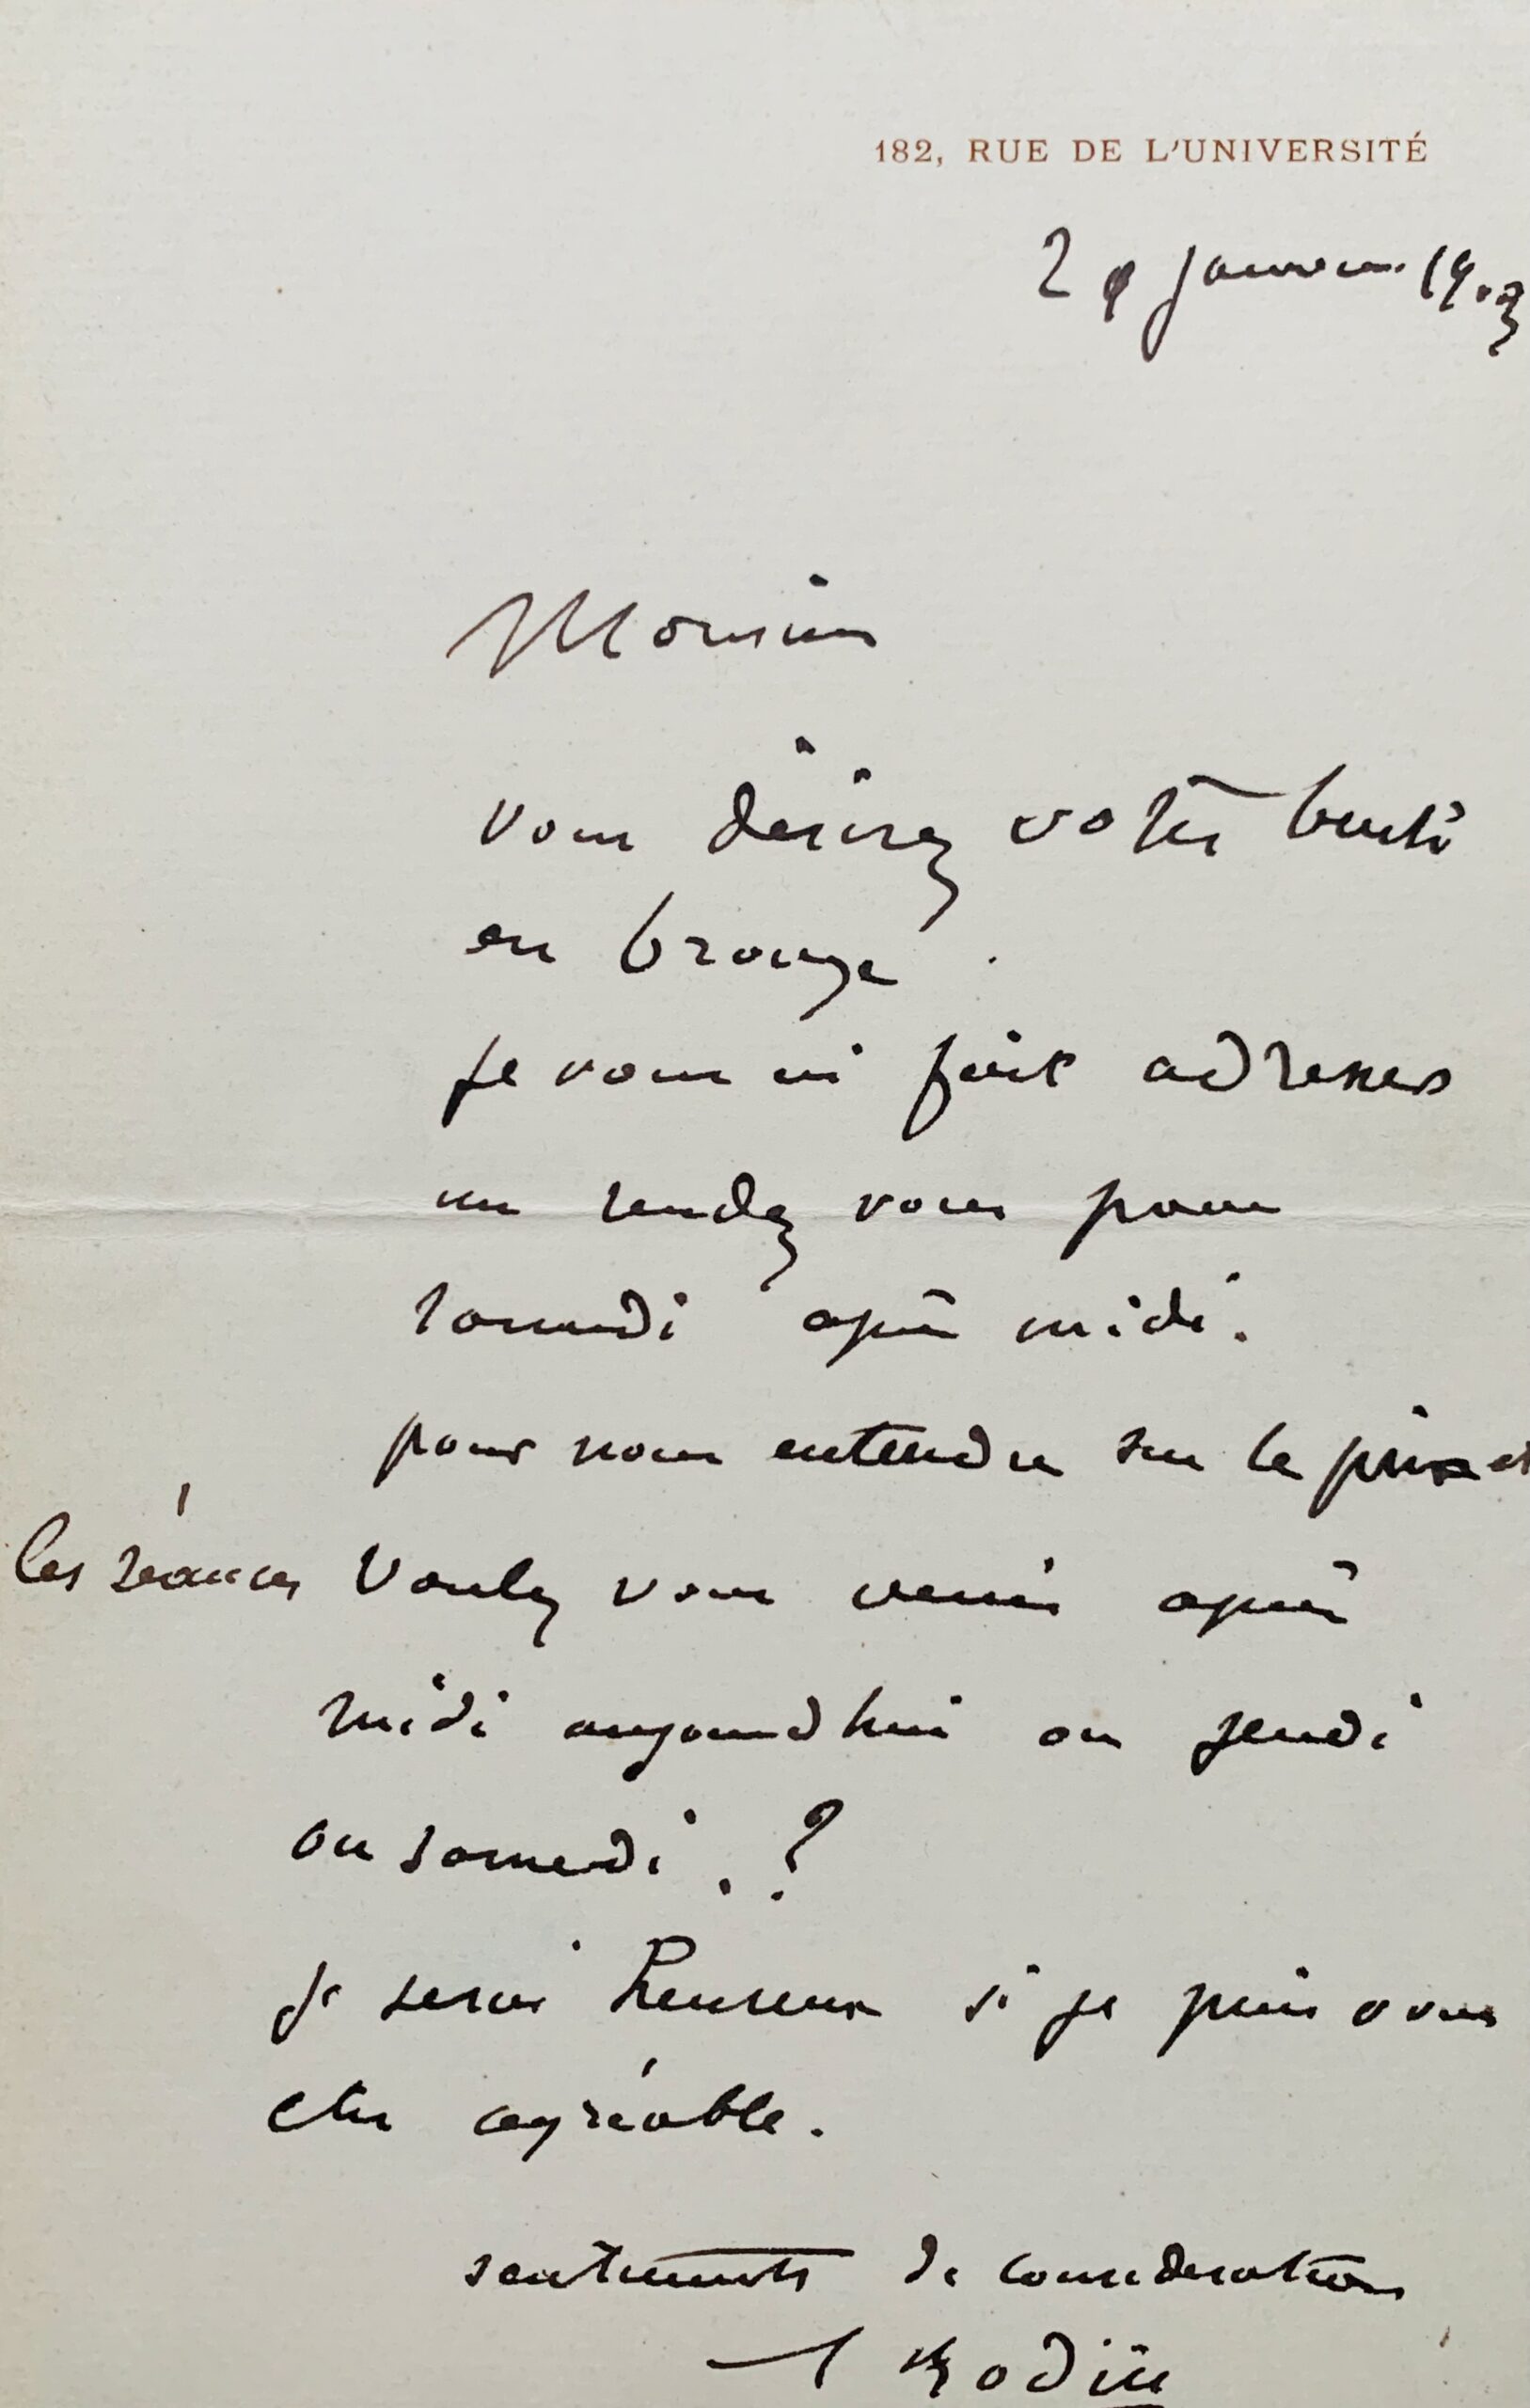 182, RUE DE L'UNIVERSITÉ
janvier 190
Monsieur
vous désirez votre buste
en bronze.
Je vous ai fait adresser
un rendez vous pour
samedi après midi.
pour nous entendre sur le prix et
les séances Voulez vous venir après
midi aujourdhui ou jeudi
ou samedi. ?
Je serai heureux si je puis vous
etre agréable.
sentiments de consideration
A Rodin